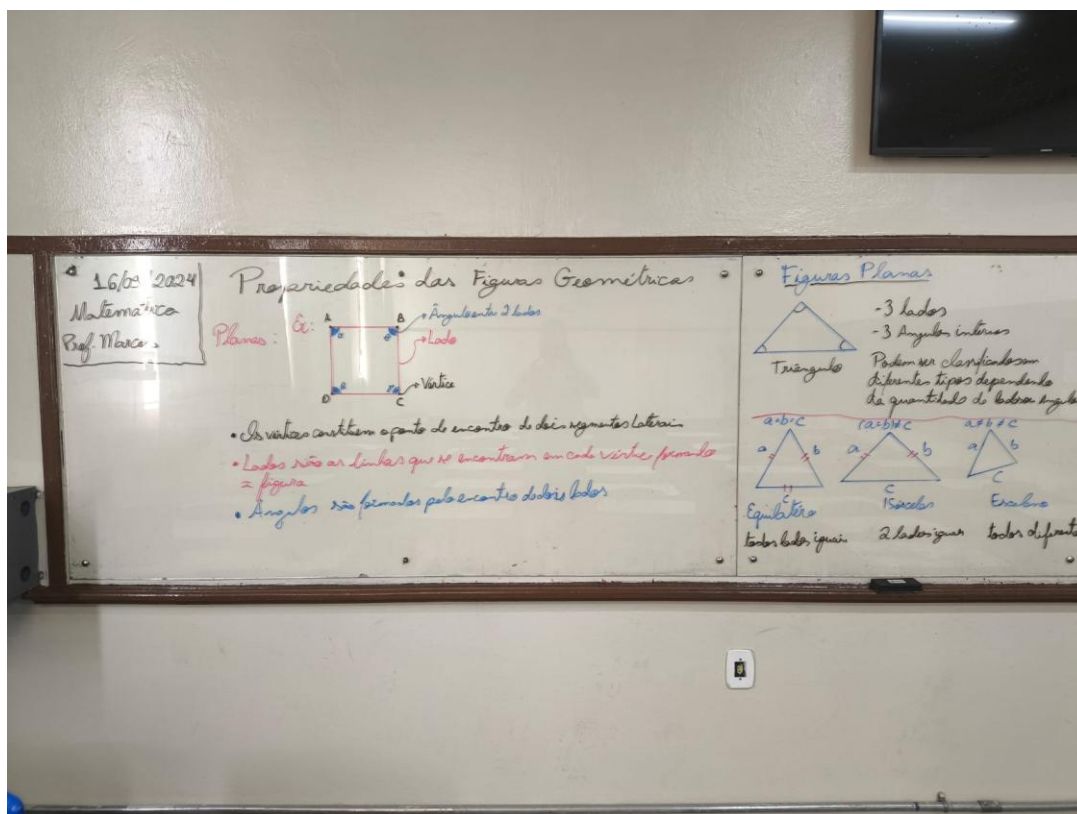 16/09/2024
Matemática
Prof. Marcos
Propriedades das Figuras Geométricas
Planas: Ex:
A B
Ângulo entre 2 lados
Lado
Vértice
D C
• Os vértices constituem o ponto de encontro de dois segmentos laterais
• Lados são as linhas que se encontram em cada vértice formando
a figura
• Ângulos são formados pelo encontro de dois lados
Figuras Planas
-3 lados
-3 Angulos internos
Triângulo
Podem ser classificados em
diferentes tipos dependendo
da quantidade de lados e angulo
a=b=c (a=b)≠c a≠b≠c
a b a b a b
c c c
Equilatéro Isósceles Escaleno
todos lados iguais 2 lados iguais todos diferente